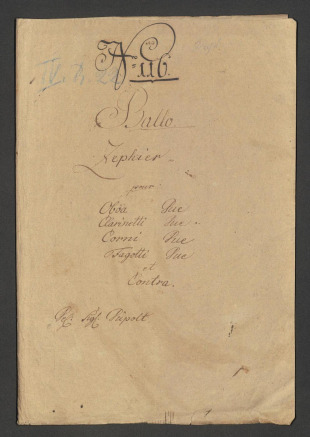 N 116.
Ballo
Zephier
pour
Oboa Due
Clarinetti Due
Corni Due
Fagotti Due
et
Contra.
Del Sigl.